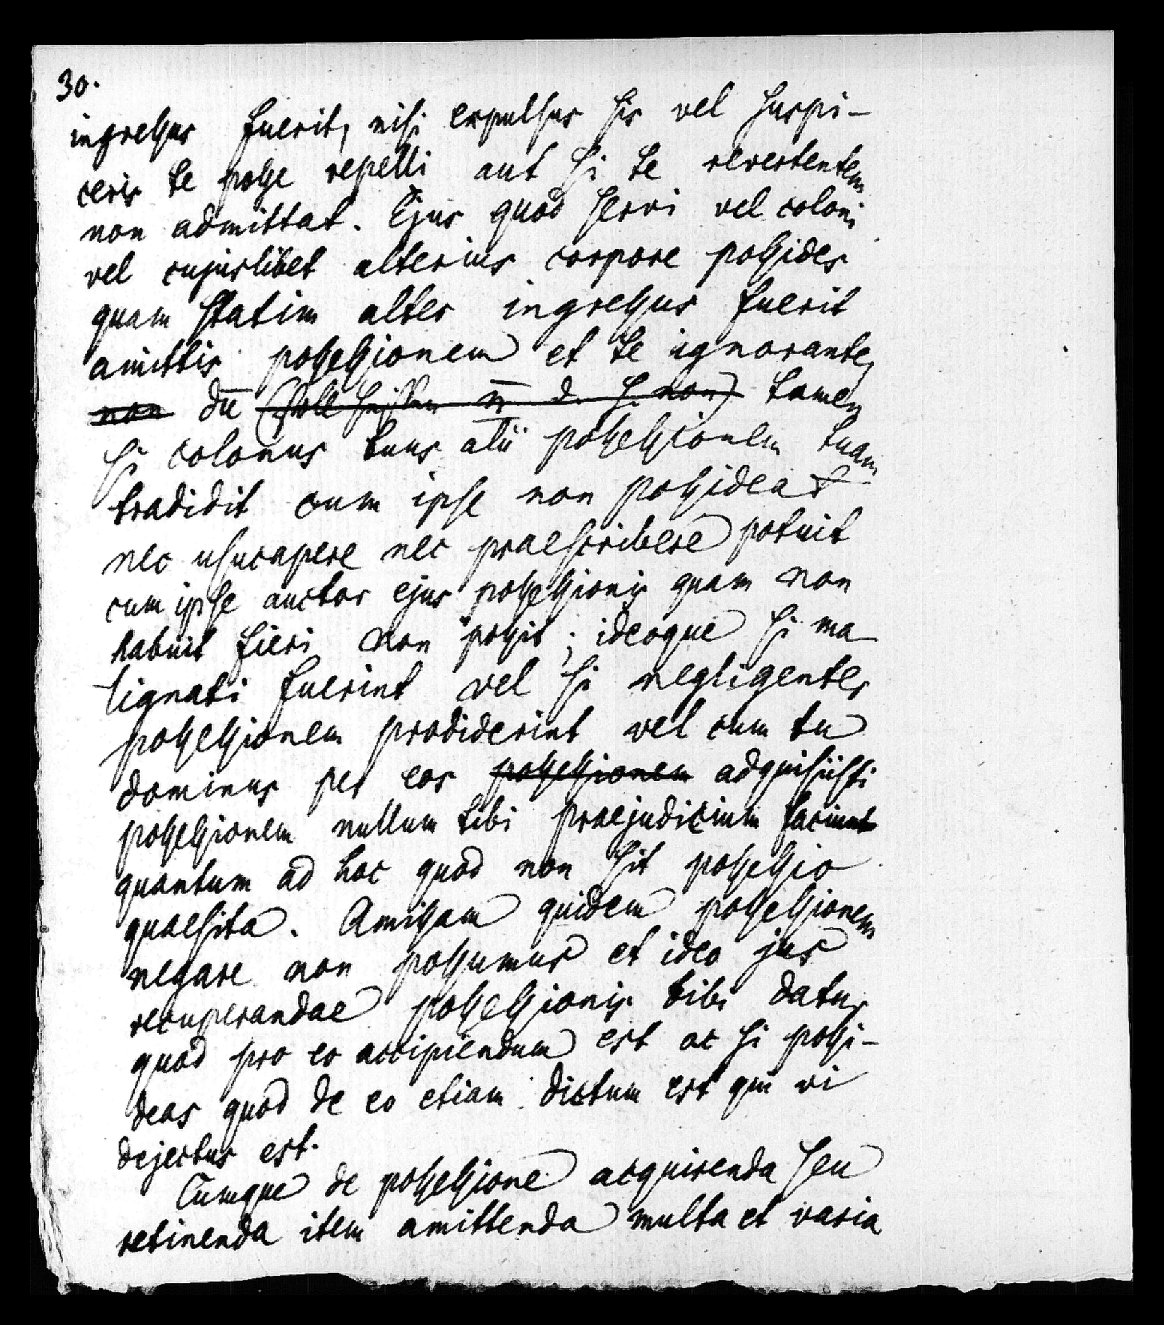 30.
ingressus fuerit, nisi expulsus sis vel suspi-
ceris te posse repelli aut si te revertentem
non admittat. Ejus quod servi vel coloni
vel cujuslibet alterius corpore possides
quam statim alter ingressus fuerit
amittis possessionem et te ignorante,
non dū tamen
si colonus tuus alii possessionem tuam
tradidit cum ipse non possideat
nec usucapere nec praescribere potuit
cum ipse auctor ejus possessionis quam non
habuit fieri non possit; ideoque si ma-
lignati fuerint vel si negligenter
possessionem prodiderint vel cum tu
dominus per eos possessionem adquisiisti
possessionem nullum tibi praejudicium faciunt
quantum ad hoc quod non sit possessio
quaesita. Amissam quidem possessionem
negare non possumus et ideo jus
recuperandae possessionis tibi datur
quod pro eo accipiendum est ac si possi-
deas quod de eo etiam dictum est qui vi
dejectus est.
Cumque de possessione acquirenda seu
retinenda item amittenda multa et varia